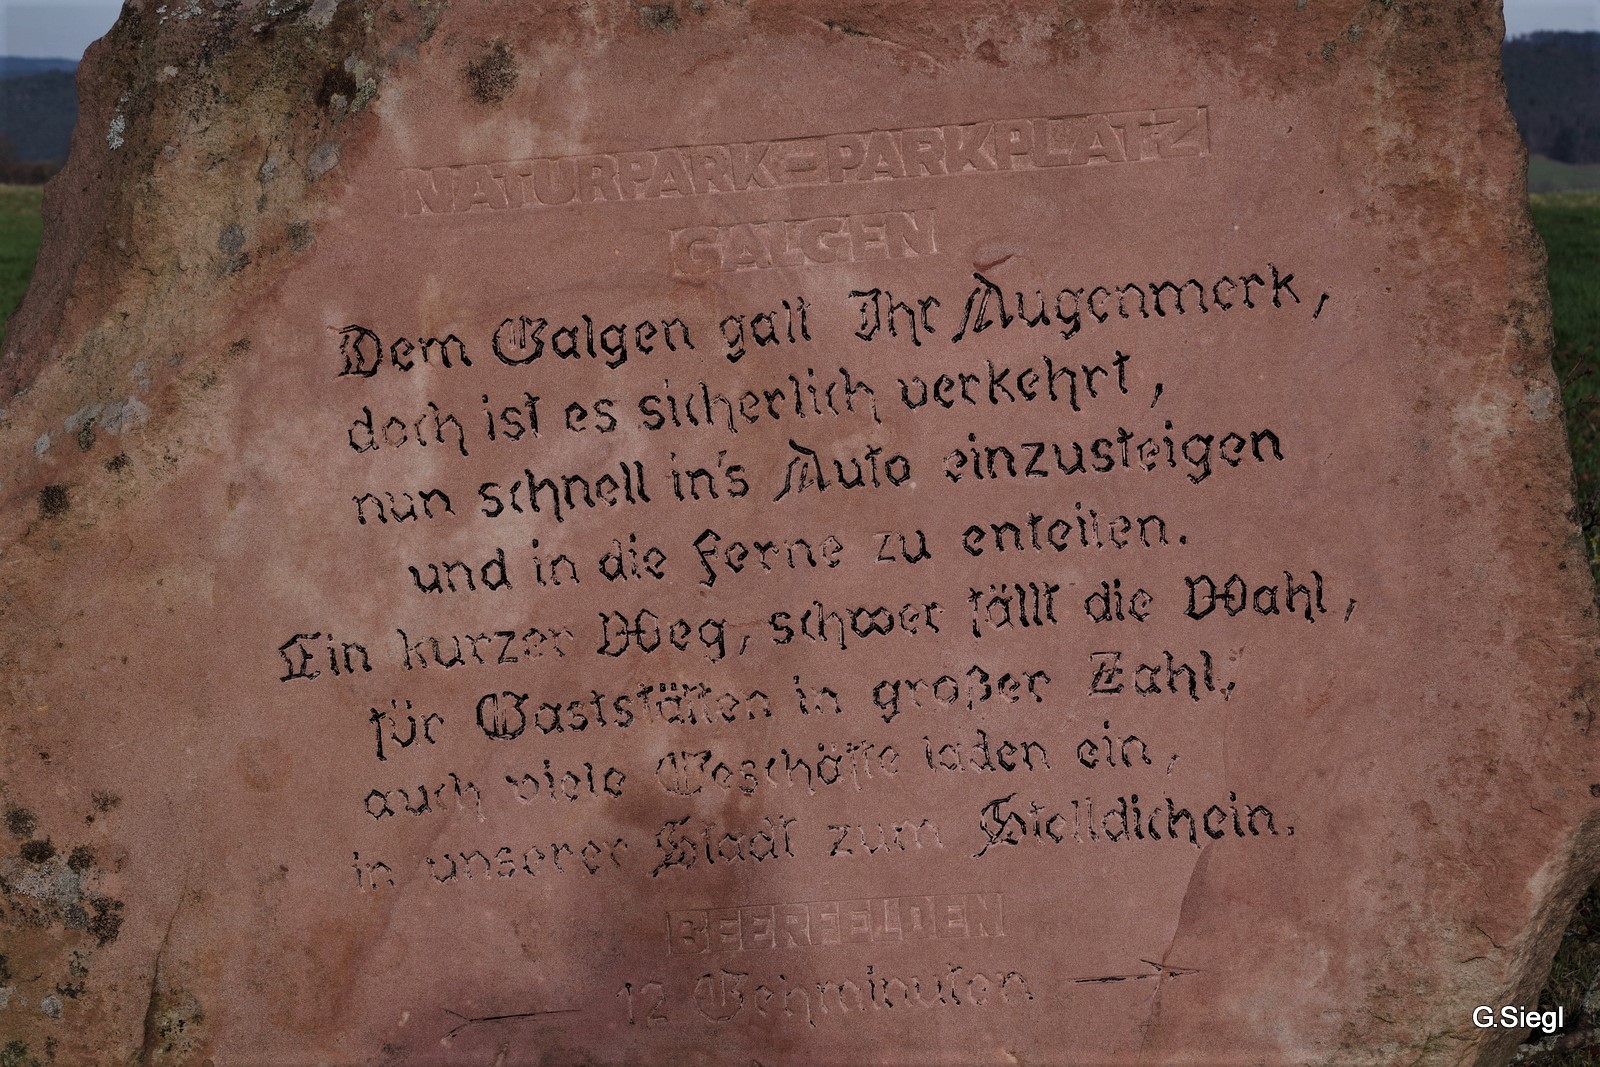 NATURPARK-PARKPLATZ
GALGEN
Dem Galgen galt Ihr Augenmerk,
doch ist es sicherlich verkehrt,
nun schnell in's Auto einzusteigen
und in die Ferne zu enteilen.
Ein kurzer Weg, schwer fällt die Wahl,
für Gaststätten in großer Zahl,
auch viele Geschäfte laden ein,
in unserer Stadt zum Stelldichein.
BEERFELDEN
12 Gehminuten
G.Siegl